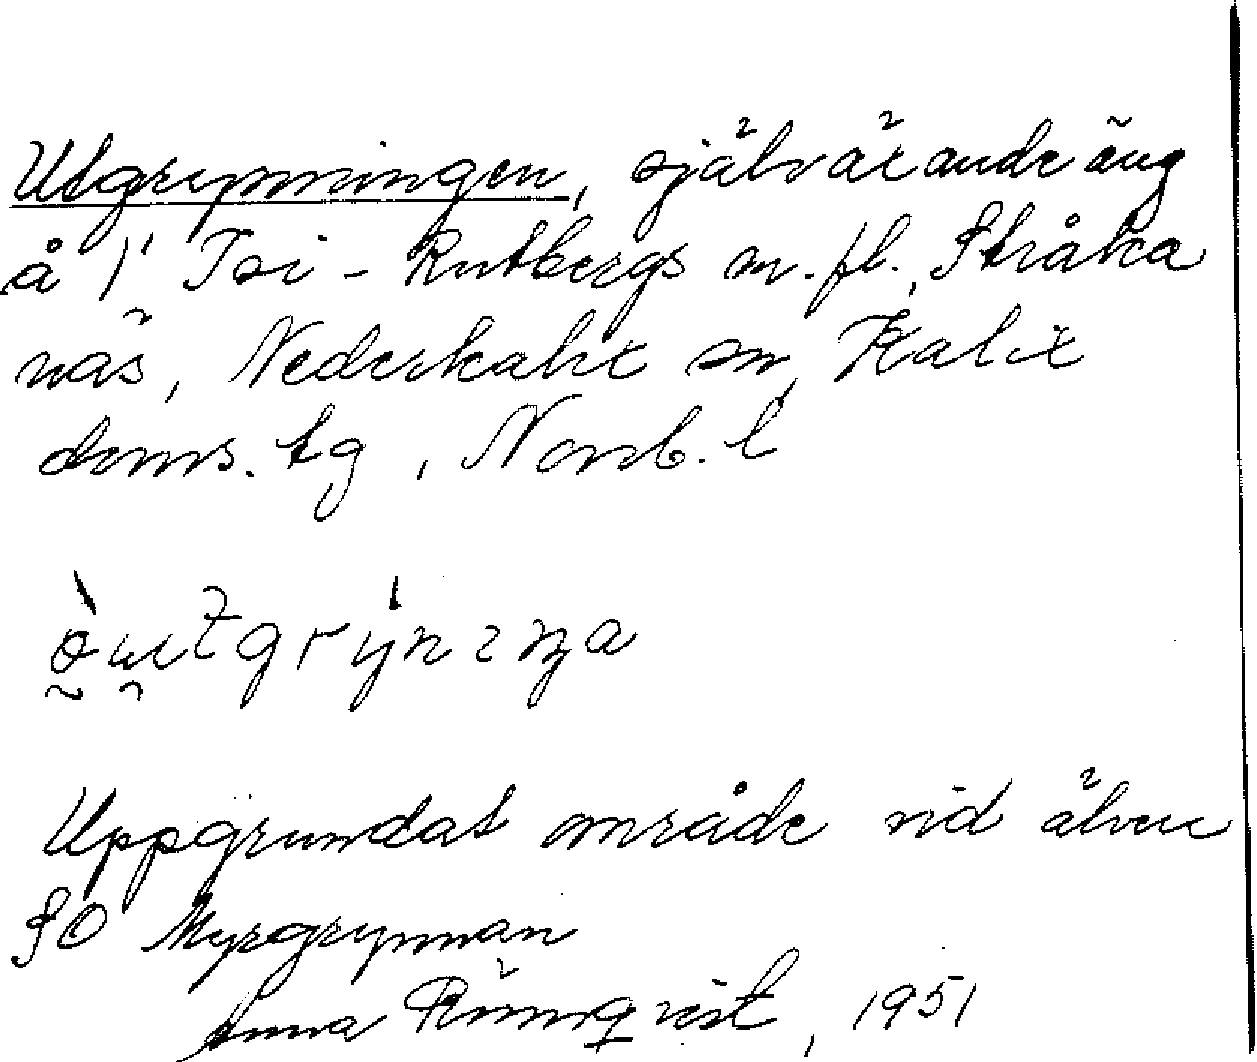 Utgrynningen, självärande äng
å 1" Tsi - Rutbergs m.fl., Stråka
näs, Nederkalix sn, Kalix
doms. tg, Norrb. l
Uppgrundat område vid älven
SO Myrgrynnan
Anna Rönnqvist, 1951